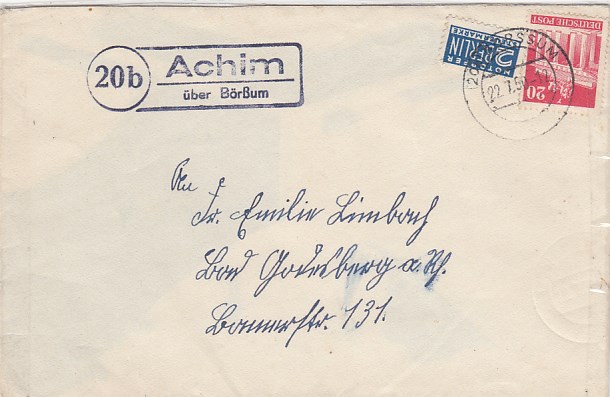 20b
Achim
über Börßum
NOTOPFER
2 BERLIN
STEUERMARKE
DEUTSCHE POST
20
BÖRSSUM
22.7.50
An
Fr. Emilie Limbach
Bad Godesberg a. Rh.
Bonnerstr. 131.